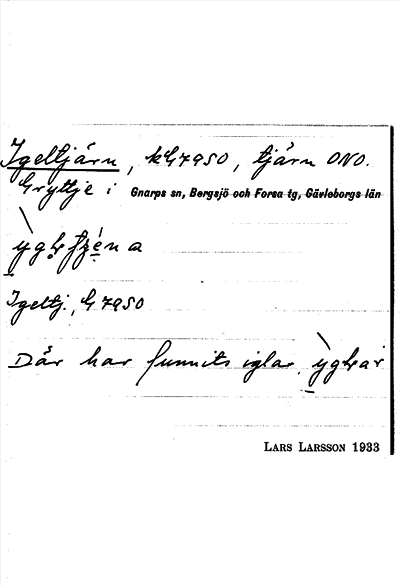 Igeltjärn, kG7950, tjärn ONO.
Gryttje i Gnarps sn, Bergsjö och Forsa tg, Gävleborgs län
Igeltj., G 7950
Där har funnits iglar.
LARS LARSSON 1933